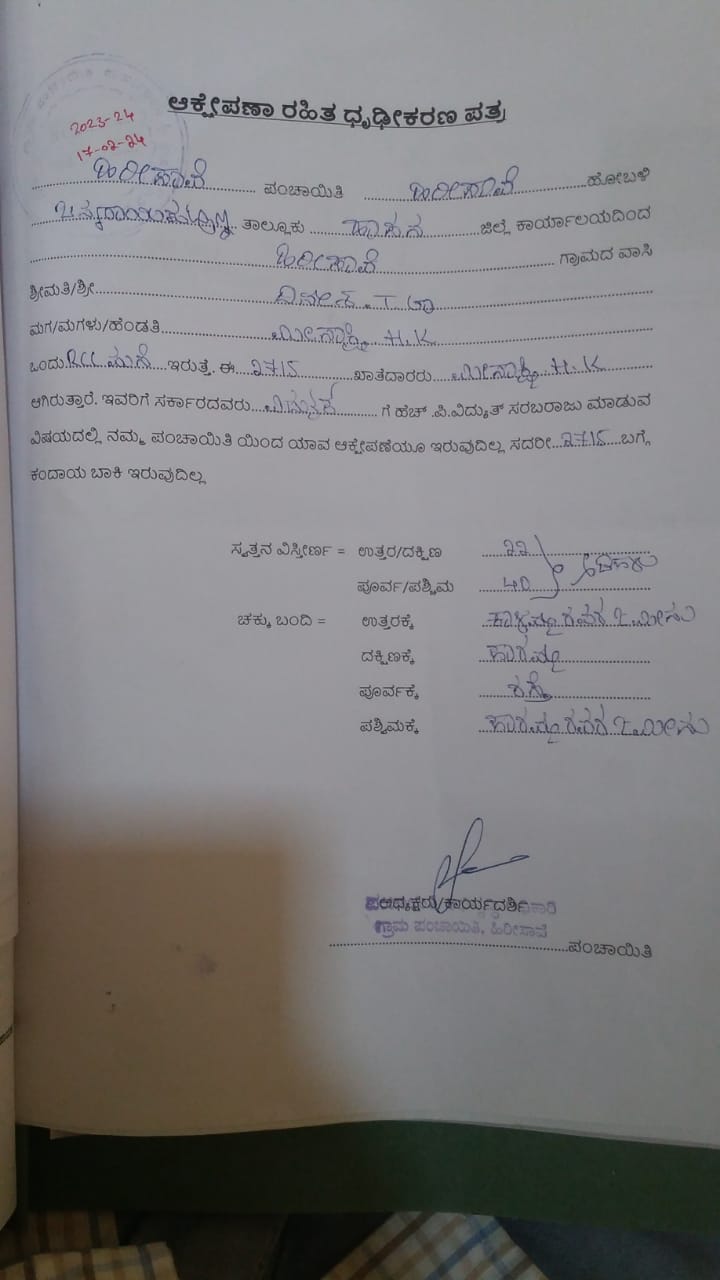 ಆಕ್ಷೇಪಣಾ ರಹಿತ ಧೃಢೀಕರಣ ಪತ್ರ
2023-24
17-02-24
ಹಿರೀಸಾವೆ ಪಂಚಾಯಿತಿ ಹಿರೀಸಾವೆ ಹೋಬಳಿ
ಚನ್ನರಾಯಪಟ್ಟಣ ತಾಲ್ಲೂಕು ಹಾಸನ ಜಿಲ್ಲೆ ಕಾರ್ಯಾಲಯದಿಂದ
ಹಿರೀಸಾವೆ ಗ್ರಾಮದ ವಾಸಿ
ಶ್ರೀಮತಿ/ಶ್ರೀ
ಮಗ/ಮಗಳು/ಹೆಂಡತಿ ಮೀನಾಕ್ಷಿ H.K
ಒಂದು RCC ಮನೆ ಇರುತ್ತೆ. ಈ 2715 ಖಾತೆದಾರರು ಮೀನಾಕ್ಷಿ H.K
ಆಗಿರುತ್ತಾರೆ. ಇವರಿಗೆ ಸರ್ಕಾರದವರು ಗೆ ಹೆಚ್ .ಪಿ.ವಿದ್ಯುತ್ ಸರಬರಾಜು ಮಾಡುವ
ವಿಷಯದಲ್ಲಿ ನಮ್ಮ ಪಂಚಾಯಿತಿ ಯಿಂದ ಯಾವ ಆಕ್ಷೇಪಣೆಯೂ ಇರುವುದಿಲ್ಲ ಸದರೀ 2715 ಬಗ್ಗೆ
ಕಂದಾಯ ಬಾಕಿ ಇರುವುದಿಲ್ಲ
ಸ್ವತ್ತನ ವಿಸ್ತೀರ್ಣ = ಉತ್ತರ/ದಕ್ಷಿಣ 22
ಪೂರ್ವ/ಪಶ್ಚಿಮ 40
ಚಕ್ಕು ಬಂದಿ = ಉತ್ತರಕ್ಕೆ
ದಕ್ಷಿಣಕ್ಕೆ
ಪೂರ್ವಕ್ಕೆ ರಸ್ತೆ
ಪಶ್ಚಿಮಕ್ಕೆ
ಅಧ್ಯಕ್ಷರು/ಕಾರ್ಯದರ್ಶಿ
ಗ್ರಾಮ ಪಂಚಾಯಿತಿ, ಹಿರೀಸಾವೆ
ಪಂಚಾಯಿತಿ